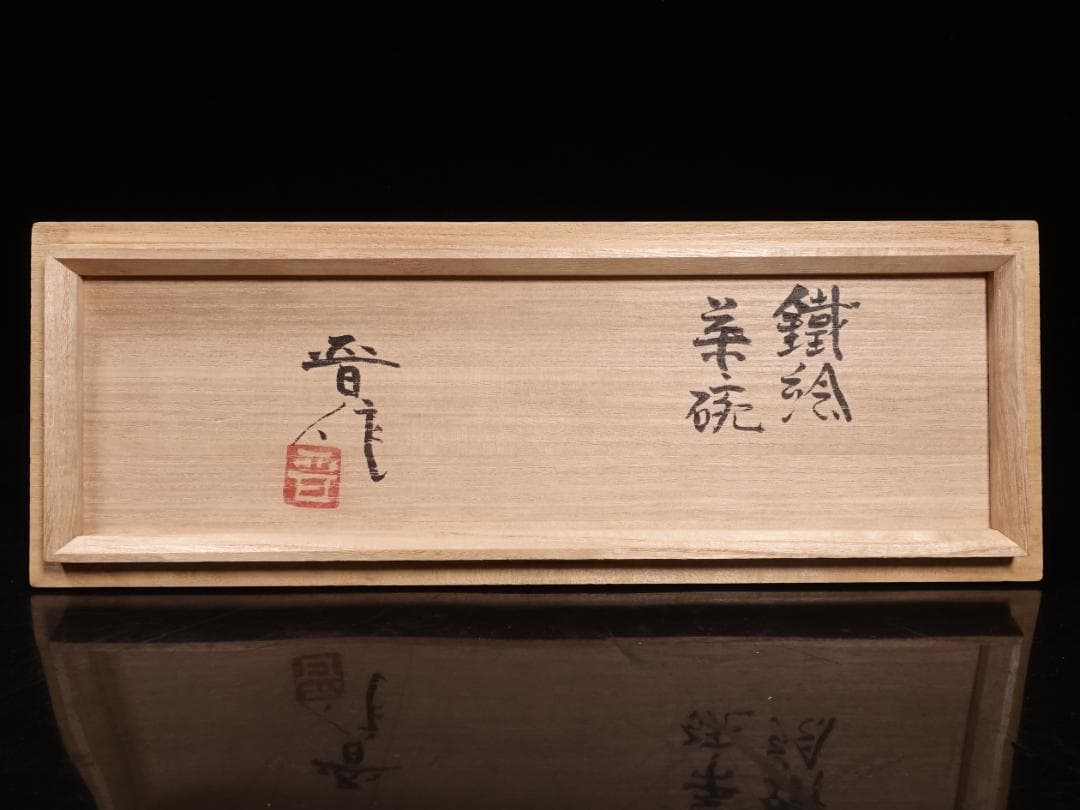 鐵絵
茶碗
晋作
晋